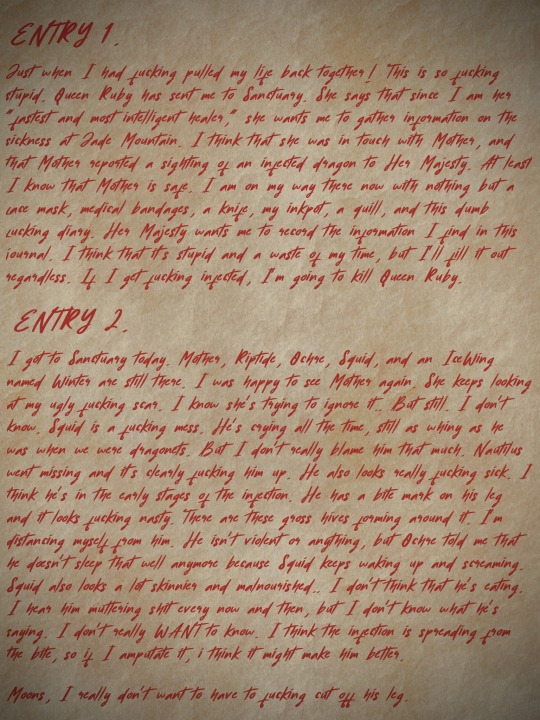 ENTRY 1.
Just when I had fucking pulled my life back together! This is so fucking
stupid. Queen Ruby has sent me to Sanctuary. She says that since I am her
"fastest and most intelligent healer," she wants me to gather information on the
sickness at Jade Mountain. I think that she was in touch with Mother, and
that Mother reported a sighting of an infected dragon to Her Majesty. At least
I know that Mother is safe. I am on my way there now with nothing but a
lace mask, medical bandages, a knife, my inkpot, a quill, and this dumb
fucking diary. Her Majesty wants me to record the information I find in this
journal. I think that it's stupid and a waste of my time, but I'll fill it out
regardless. If I get fucking infected, I'm going to kill Queen Ruby.
ENTRY 2.
I got to Sanctuary today. Mother, Riptide, Ochre, Squid, and an IceWing
named Winter are still there. I was happy to see Mother again. She keeps looking
at my ugly fucking scar. I know she's trying to ignore it.. But still. I don't
know. Squid is a fucking mess. He's crying all the time, still as whiny as he
was when we were dragonets. But I don't really blame him that much. Nautilus
went missing and it's clearly fucking him up. He also looks really fucking sick. I
think he's in the early stages of the infection. He has a bite mark on his leg
and it looks fucking nasty. There are these gross hives forming around it. I'm
distancing myself from him. He isn't violent or anything, but Ochre told me that
he doesn't sleep that well anymore because Squid keeps waking up and screaming.
Squid also looks a lot skinnier and malnourished.. I don't think that he's eating.
I hear him muttering shit every now and then, but I don't know what he's
saying. I don't really WANT to know. I think the infection is spreading from
the bite, so if I amputate it, i think it might make him better.
Moons, I really don't want to have to fucking cut off his leg.